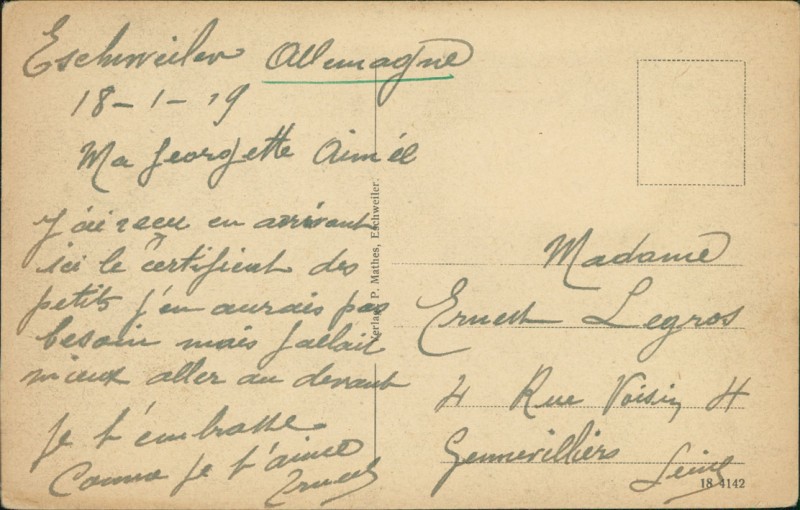 Eschweiler Allemagne
18-1-19
Ma Georgette Aimée
J'ai recu en arrivant
ici le certificat des
petits j'en aurais pas
besoin mais fallait
mieux aller au devant
Je t'embrasse
Comme Je t'aime
Ernest
Verlag P. Mathes, Eschweiler.
Madame
Ernest Legros
4 Rue Voisin 4
Gennevilliers
Seine
18 4142